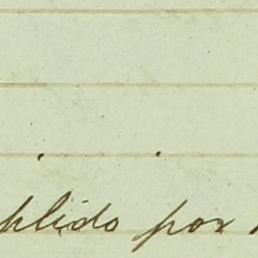 plido por